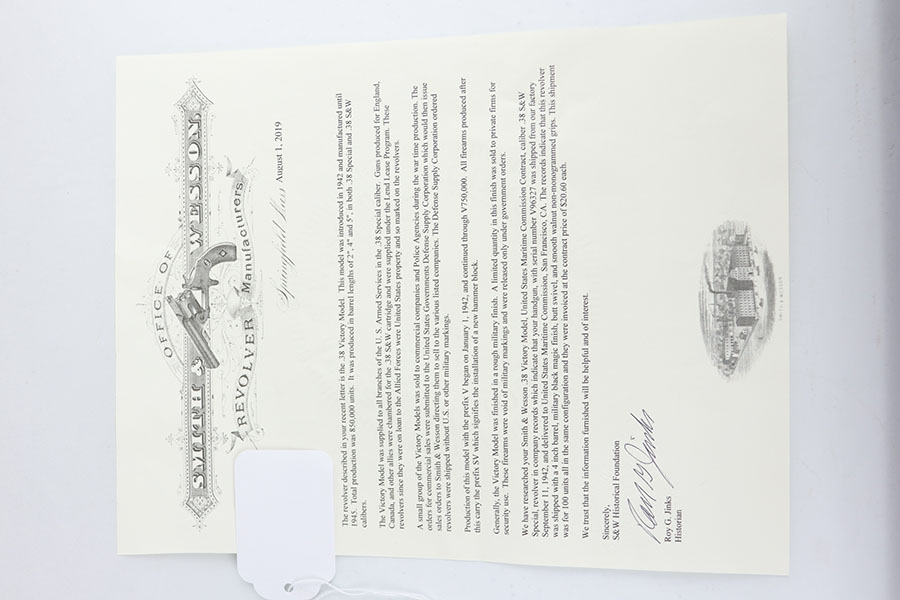 OFFICE OF
SMITH & WESSON,
REVOLVER Manufacturers,
Springfield, Mass. August 1, 2019
The revolver described in your recent letter is the .38 Victory Model. This model was introduced in 1942 and manufactured until
1945. Total production was 850,000 units. It was produced in barrel lengths of 2", 4" and 5", in both .38 Special and .38 S&W
calibers.
The Victory Model was supplied to all branches of the U. S. Armed Services in the .38 Special caliber. Guns produced for England,
Canada, and other allies were chambered for the .38 S&W cartridge and were supplied under the Lend Lease Program. These
revolvers since they were on loan to the Allied Forces were United States property and so marked on the revolvers.
A small group of the Victory Models was sold to commercial companies and Police Agencies during the war time production. The
orders for commercial sales were submitted to the United States Governments Defense Supply Corporation which would then issue
sales orders to Smith & Wesson directing them to sell to the various listed companies. The Defense Supply Corporation ordered
revolvers were shipped without U.S. or other military markings.
Production of this model with the prefix V began on January 1, 1942, and continued through V750,000. All firearms produced after
this carry the prefix SV which signifies the installation of a new hammer block.
Generally, the Victory Model was finished in a rough military finish. A limited quantity in this finish was sold to private firms for
security use. These firearms were void of military markings and were released only under government orders.
We have researched your Smith & Wesson .38 Victory Model, United States Maritime Commission Contract, caliber .38 S&W
Special, revolver in company records which indicate that your handgun, with serial number V96327 was shipped from our factory
September 11, 1942, and delivered to United States Maritime Commission, San Francisco, CA. The records indicate that this revolver
was shipped with a 4 inch barrel, military black magic finish, butt swivel, and smooth walnut non-monogrammed grips. This shipment
was for 100 units all in the same configuration and they were invoiced at the contract price of $20.60 each.
We trust that the information furnished will be helpful and of interest.
Sincerely,
S&W Historical Foundation
Roy G. Jinks
Roy G. Jinks
Historian